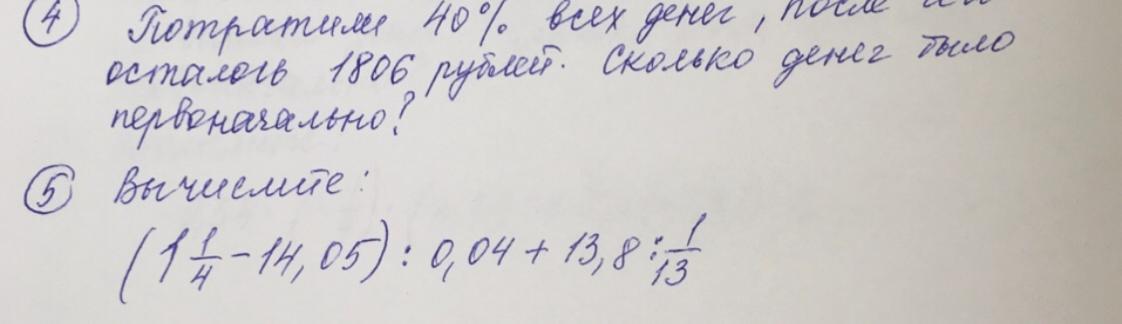 ④ Потратили 40% всех денег, после чего
осталось 1806 рублей. Сколько денег было
первоначально?
⑤ Вычислите:
(1 1/4 - 14,05) : 0,04 + 13,8 : 1/13